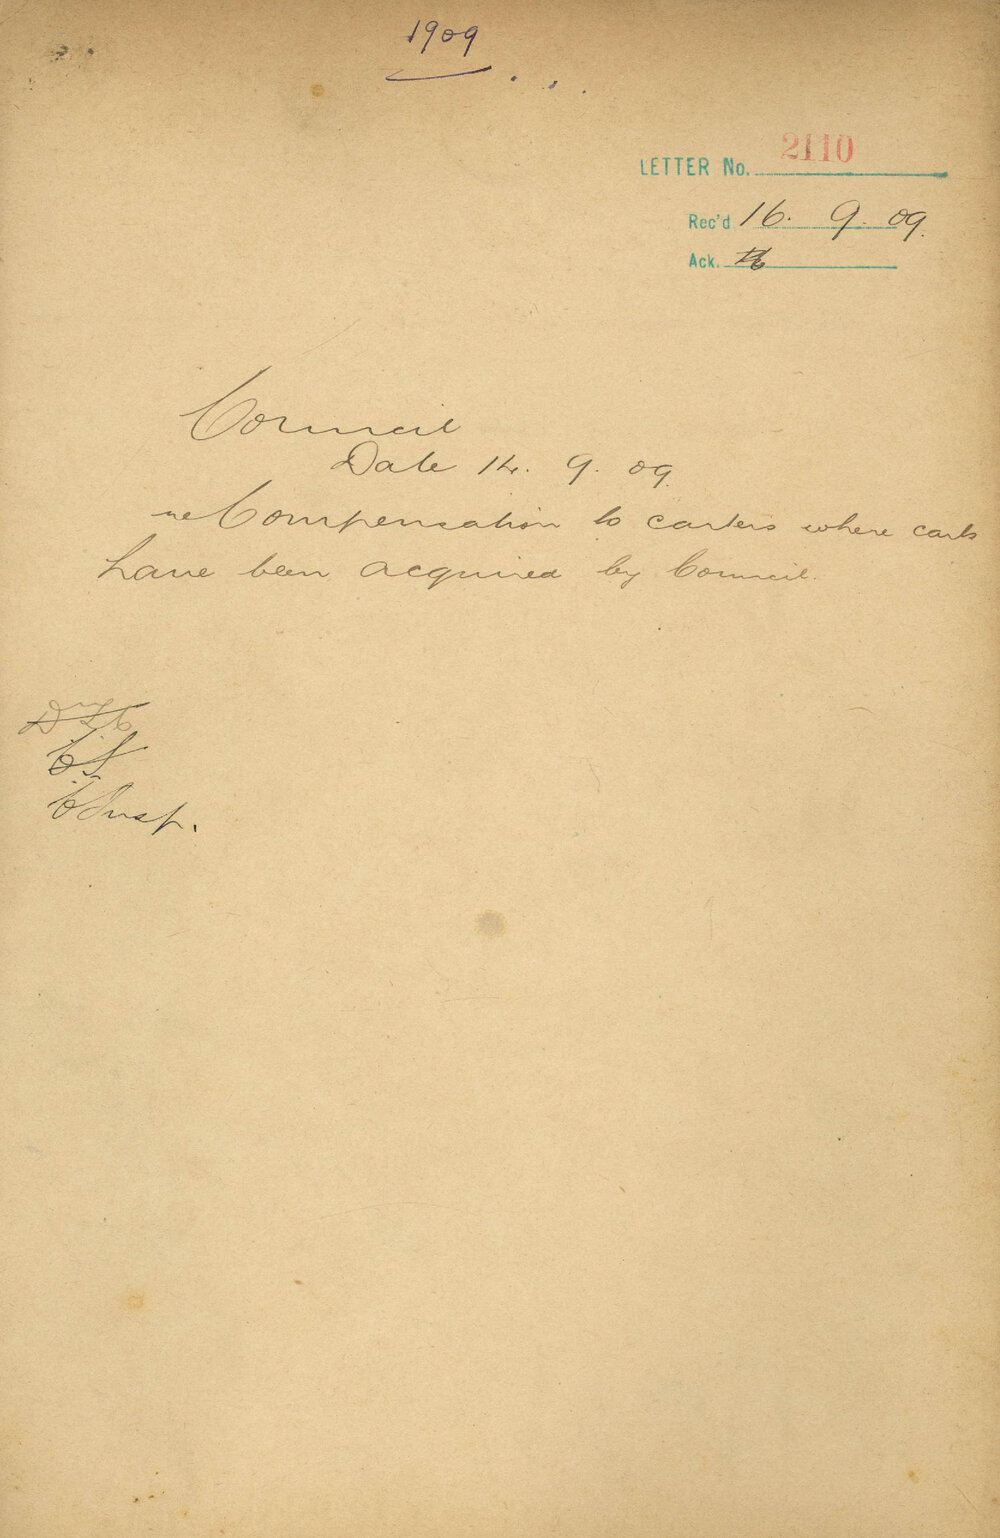 1909
LETTER No. 2110
Rec'd 16. 9. 09.
Ack.
Council
Date 14. 9. 09.
re Compensation to carters where carts
have been acquired by Council.
C.S.
C Insp.